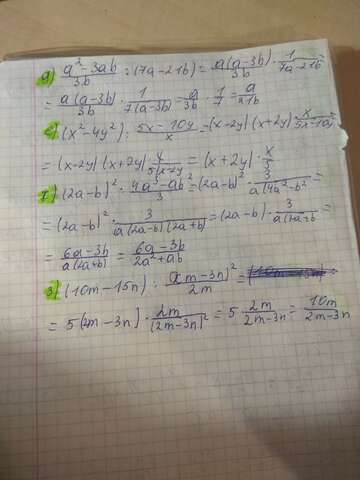 д) (a² - 3ab)/3b : (7a - 21b) = a(a-3b)/3b · 1/(7a-21b) =
= a(a-3b)/3b · 1/7(a-3b) = a/3b · 1/7 = a/21b
(x² - 4y²) : (5x - 10y)/x = (x-2y)(x+2y) · x/(5x-10y)
= (x-2y)(x+2y) x/5(x-2y = (x+2y) · x/5
(2a-b)² · (4a³ - ab²)/3 = (2a-b)² · 3/a(4a²-b² =
= (2a-b)² · 3/a(2a-b)(2a+b) = (2a-b) · 3/a(2a+b =
= (6a-3b)/a(2a+b) = (6a-3b)/(2a²+ab)
з) (10m - 15n) : (2m-3n)²/2m =
= 5(2m-3n) · 2m/(2m-3n)² = 5 · 2m/(2m-3n) = 10m/(2m-3n)